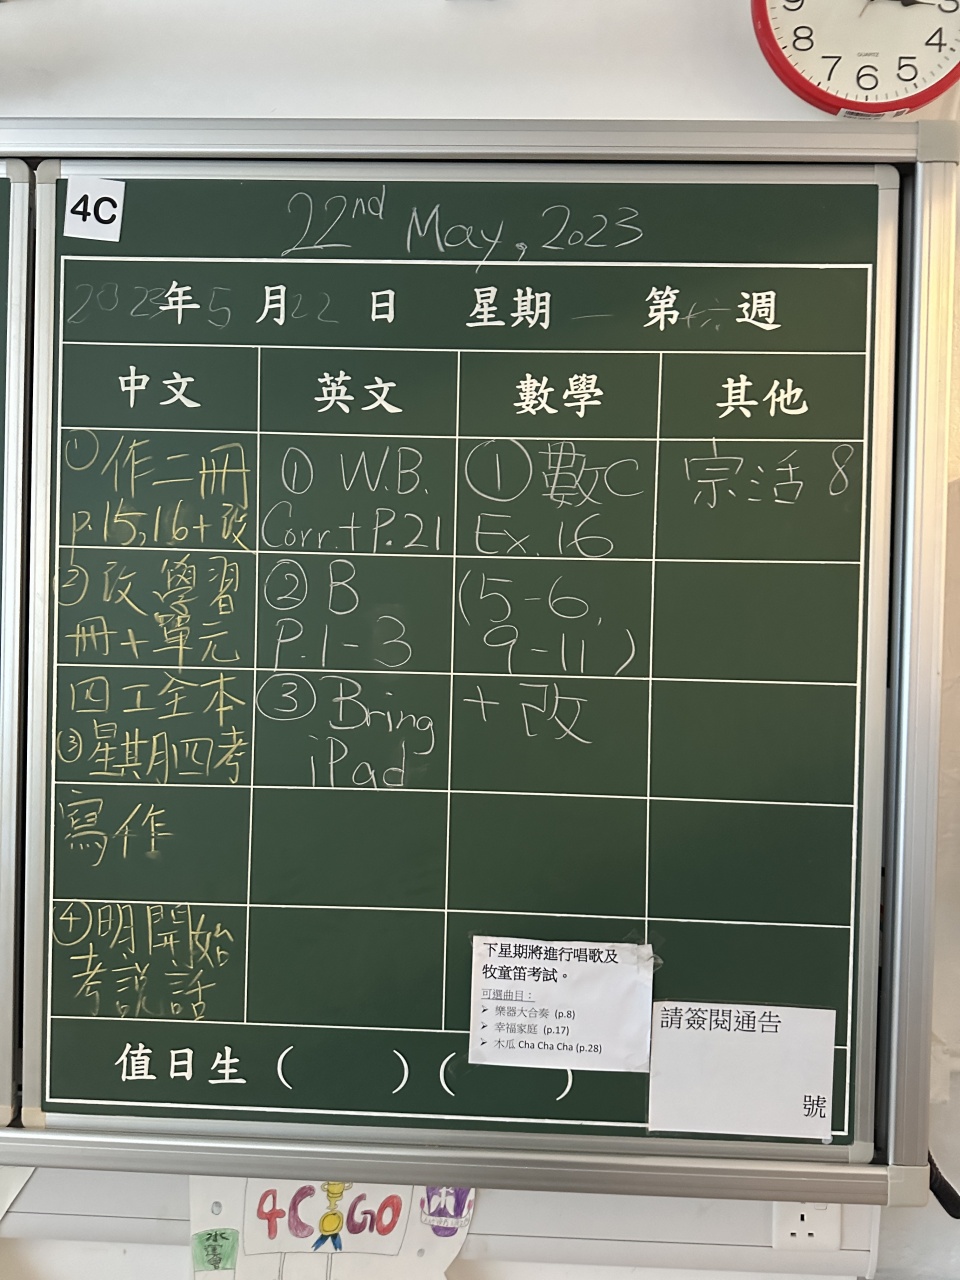 9 3
8 4
7 6 5
QUARTZ
4C
22nd May, 2023
2023年5月22日 星期一 第十六週
中文 英文 數學 其他
①作二冊
p.15,16+改
②改學習
冊+單元
四工全本
③星期四考
寫作
④明開始
考說話
① W.B.
Corr.+P.21
② B
P.1-3
③ Bring
iPad
① 數C
Ex.16
(5-6,
9-11)
+改
宗活 8
下星期將進行唱歌及
牧童笛考試。
可選曲目：
➢ 樂器大合奏 (p.8)
➢ 幸福家庭 (p.17)
➢ 木瓜 Cha Cha Cha (p.28)
請簽閱通告
號
值日生 ( ) ( )
4C GO
水運會